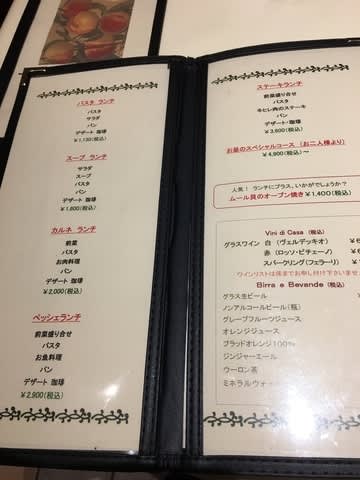 パスタ ランチ
パスタ
サラダ
パン
デザート 珈琲
¥1,130(税込)
スープ ランチ
サラダ
スープ
パスタ
パン
デザート 珈琲
¥1,600(税込)
カルネ ランチ
前菜
パスタ
お肉料理
パン
デザート 珈琲
¥2,000(税込)
ペッシェランチ
前菜盛り合せ
パスタ
お魚料理
パン
デザート 珈琲
¥2,900(税込)
ステーキランチ
前菜盛り合せ
パスタ
牛ヒレ肉のステーキ
パン
デザート・珈琲
¥3,600(税込)
お昼のスペシャルコース (お二人様より)
¥4,900(税込)～
人気! ランチにプラス、いかがでしょうか?
ムール貝のオーブン焼き ¥1,400(税込)
Vini di Casa (税込)
グラスワイン 白 (ヴェルデッキオ)
赤 (ロッソ・ピチェーノ)
スパークリング(フェラーリ)
ワインリストは係までお申し付け下さいませ
Birra e Bevande (税込)
グラス生ビール
ノンアルコールビール(瓶)
グレープフルーツジュース
オレンジジュース
ブラッドオレンジ100%
ジンジャーエール
ウーロン茶
ミネラルウォ